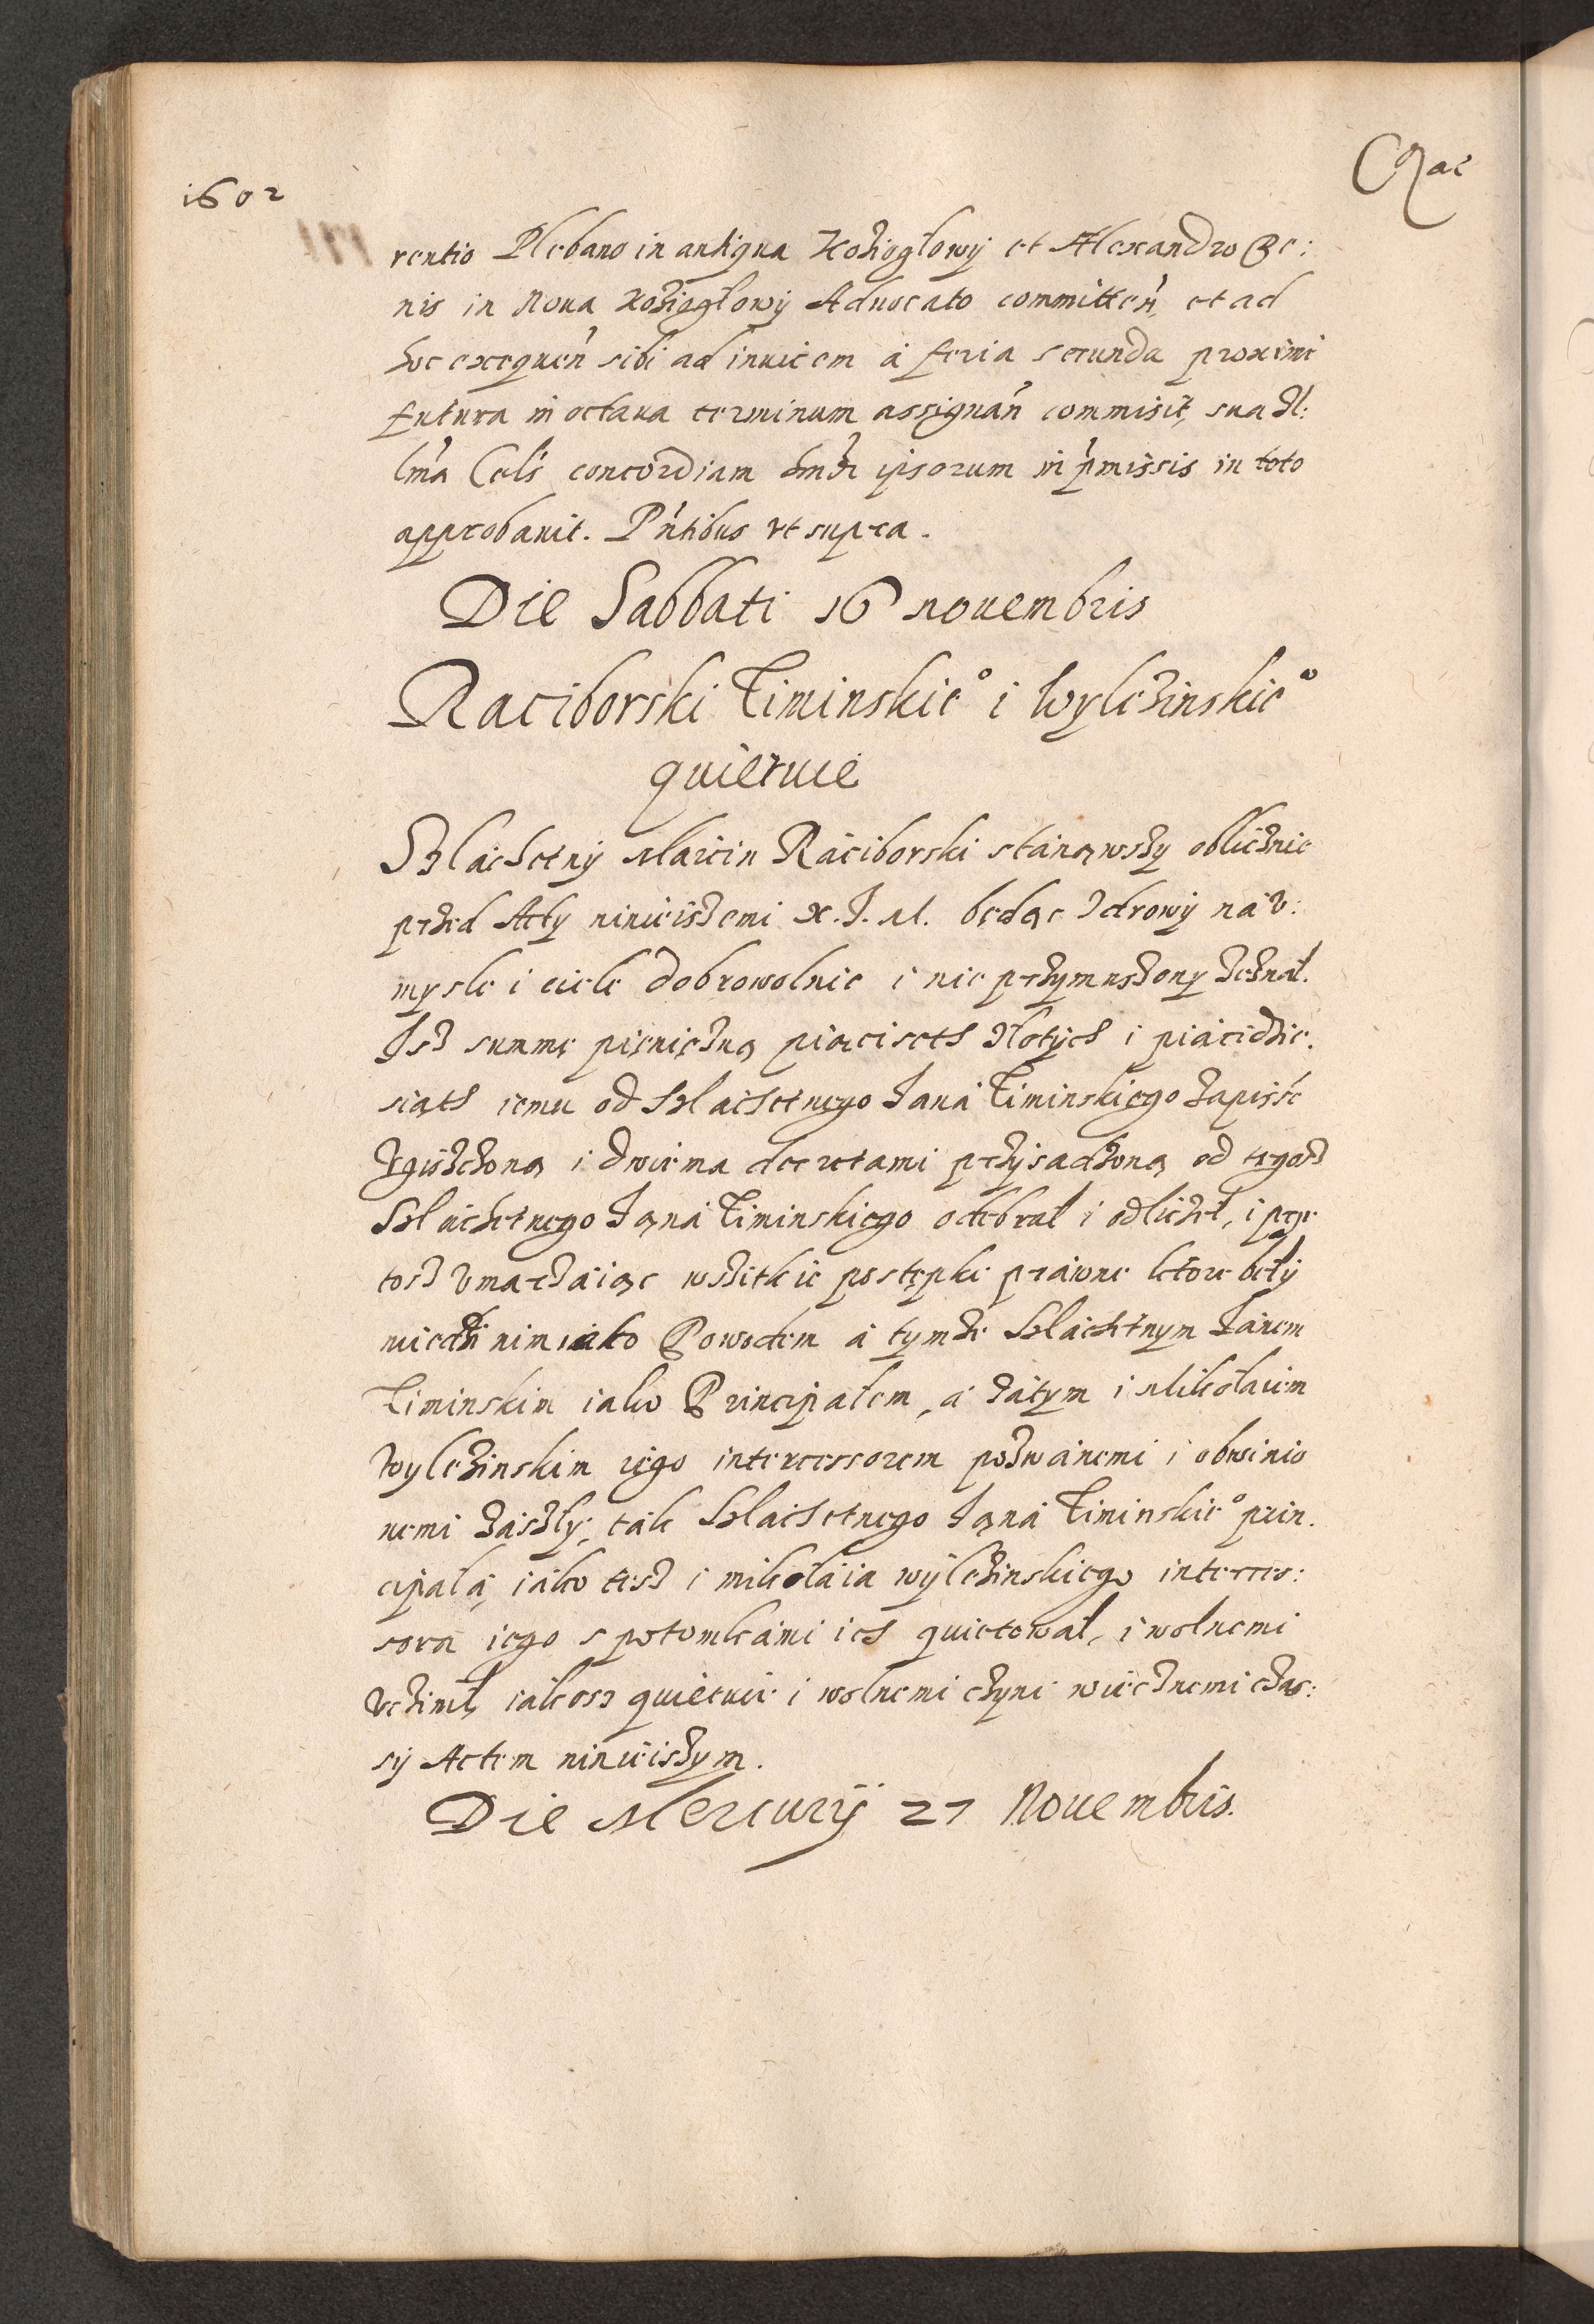 Crac
1602
rentio Plebano in antiqua Kozieglowÿ et Alexandro Be:
nis in Noua Kozieglowÿ Aduocato committeń, et ad
hoc exequeń sibi ad inuicem a feria secunda proxime
futura in octaua terminum assignań commisit, sua Il:
lm̃a Cels concordiam hm̃di ipsorum in p̃missis in toto
approbauit. Pñtibus vt supra.
Die Sabbati 16 nouembris
Raciborski Ziminskieº i Wylezinskieº
quietuie
Szlachetnÿ Marcin Raciborski stanąwszy oblicznie
przed Akty ninieiszemi X. J. M. będąc zdrowÿ na v:
mysle i ciele dobrowolnie i nie przymuszony zeznał.
Isz summe pieniężną piąciseth złotÿch i piącidzie:
siąth iemu od Szlachetnego Jana Ziminskiego zapissē
ziszczoną i dwiema decretami przÿsadzoną od tegosz
Szlachetnego Jana Ziminskiego odebrał i odliczeł, i prze
tosz vmarzaiąc wszitkie postępki prawne ktore bełÿ
miedzi nim iako Powodem a tymze Szlachetnym Janem
Ziminskim iako Principalem, a zatym i Mikołaiem
Wylezinskim iego intercessorem pozwanemi i obwinio
nemi zaszły, tak Szlachetnego Jana Ziminskieº prin.
cipala, iako tesz i mikołaia wÿlezinskiego interces:
sora iego s potomkami ich quietował, i wolnemi
vczinił, iakosz quietuie i wolnemi czyni wiecznemi czas:
sÿ Actem ninieiszym.
Die Mercurÿ 27 Nouembris.